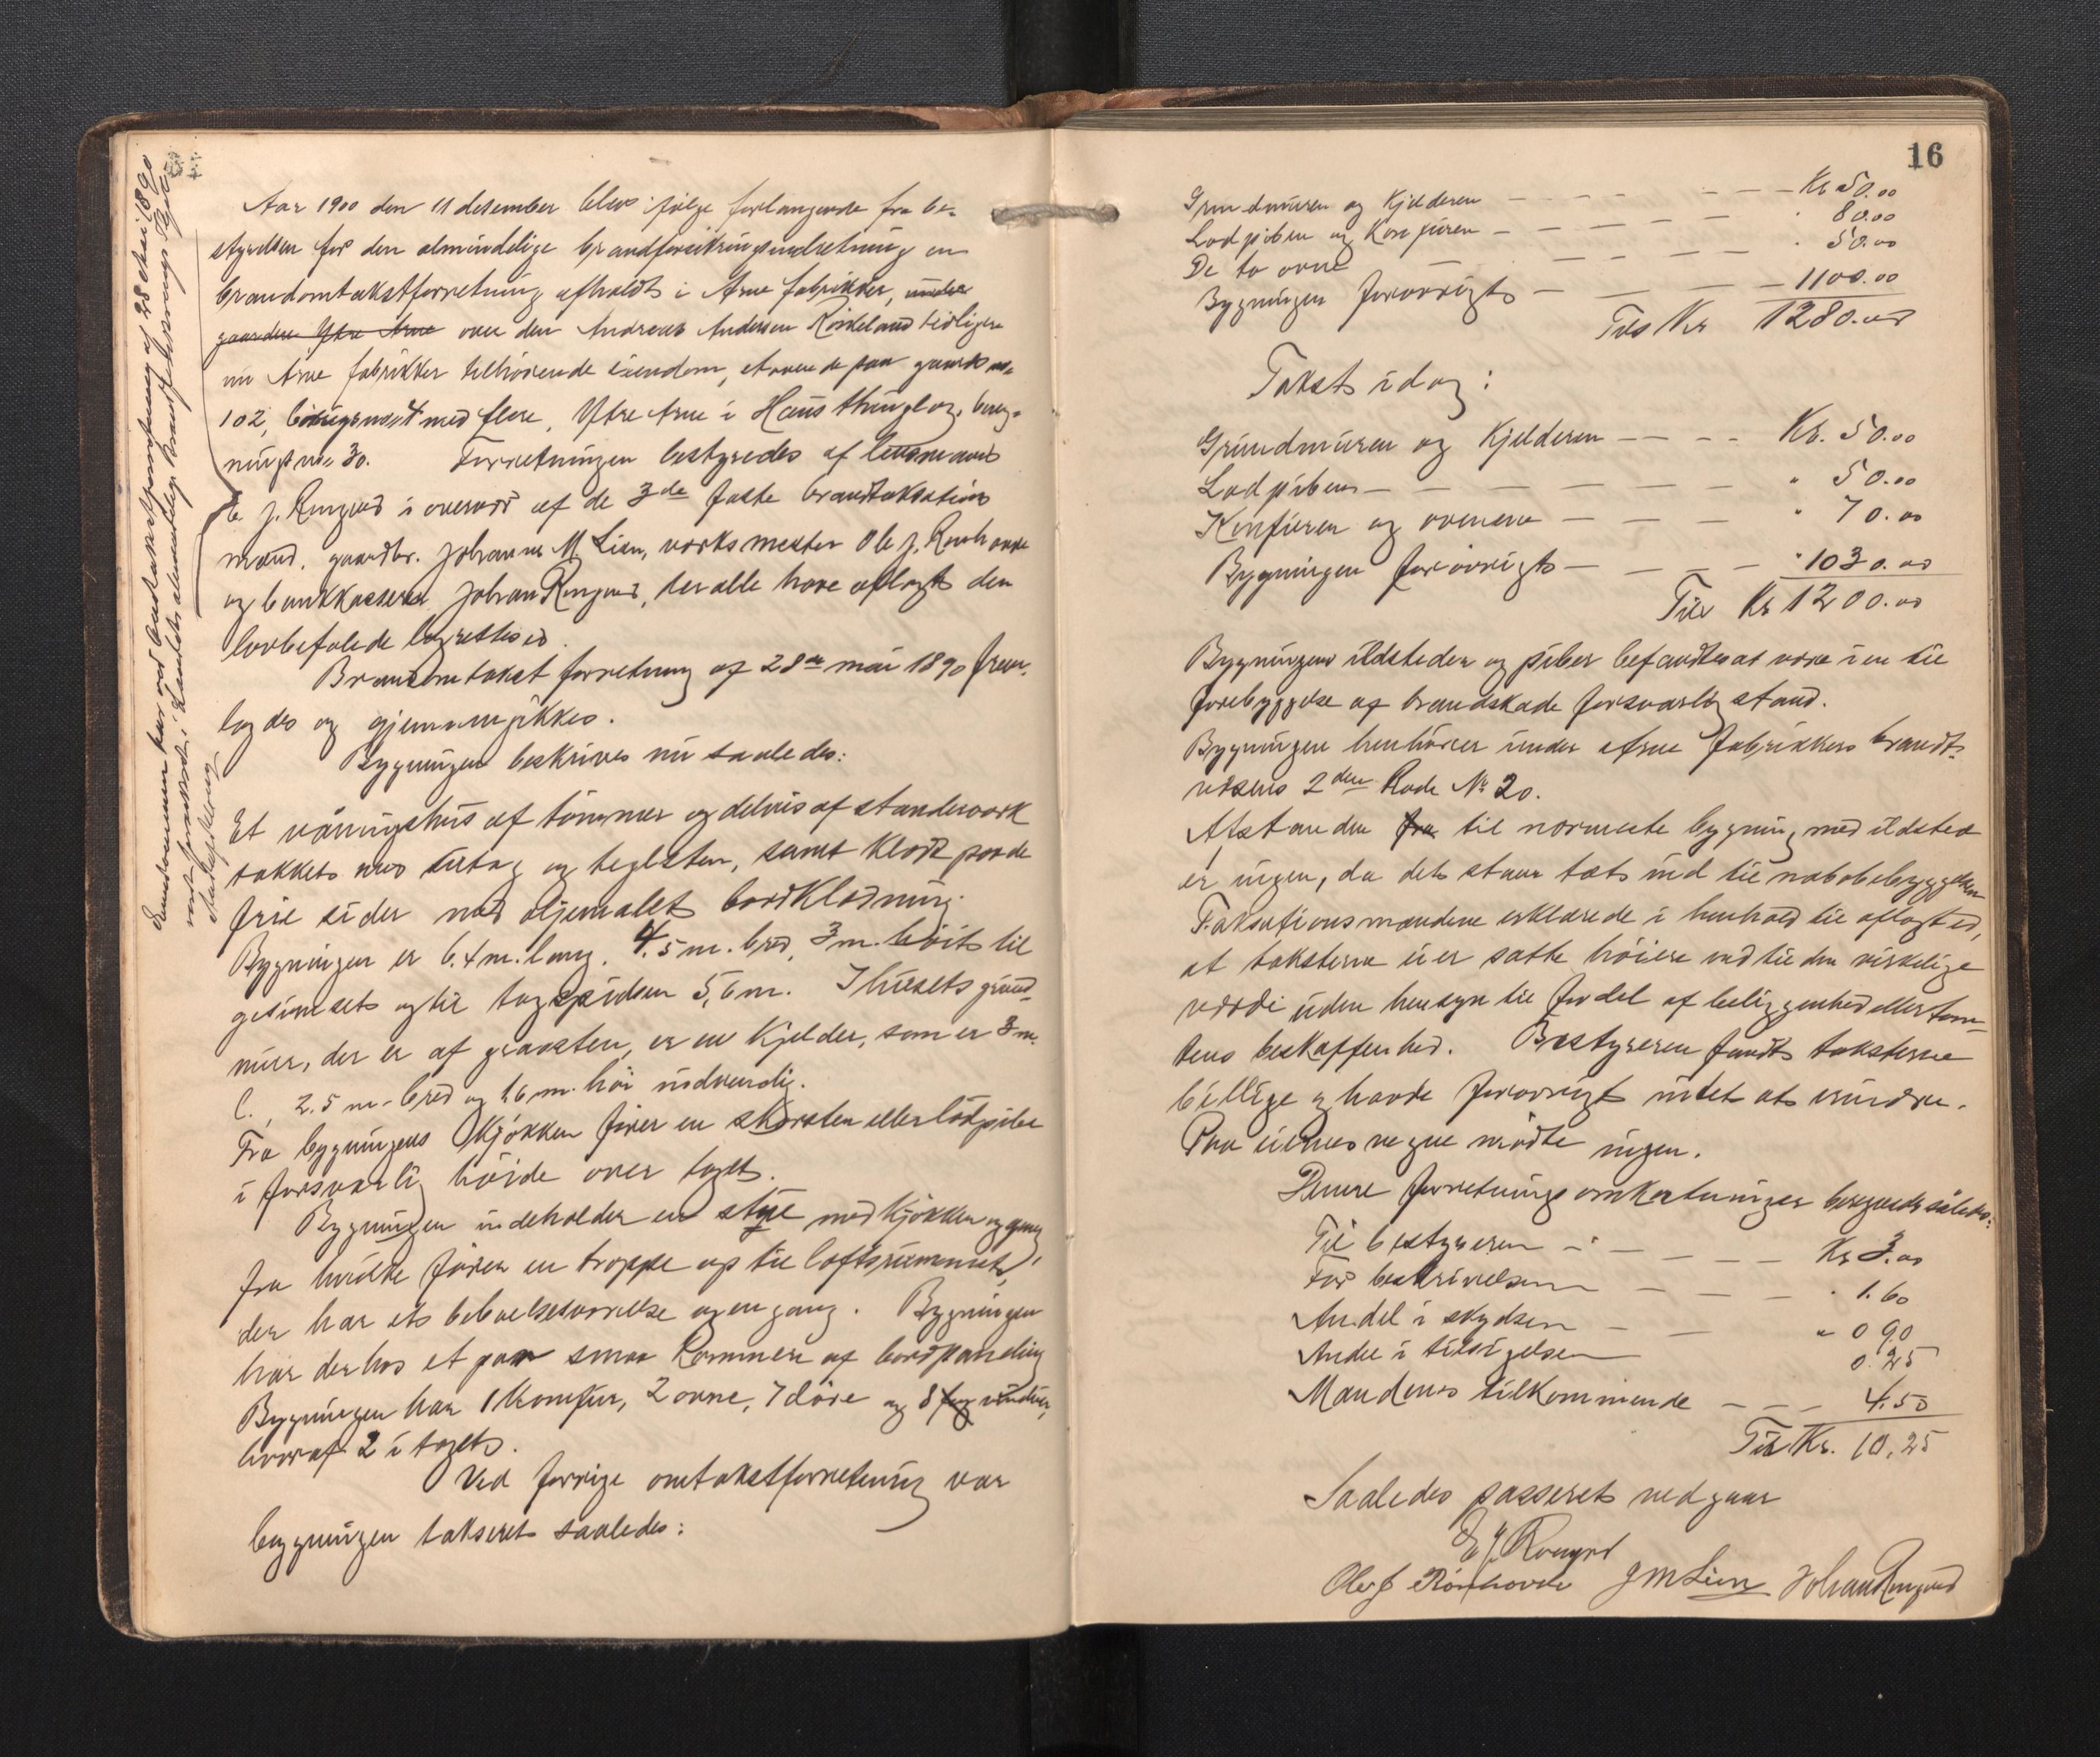 Aar 1900 den 11 desember blev ifølge forlangende fra be-
styrelsen for den almindelige brandforsikringsindretning en
brandomtakstforretning afholdt i Arne fabrikker, under
gaarden Ytre Arne over den Andreas Andersen Risteland tidligere
nu Arne fabrikker tilhørende eiendom, staaende paa gaards no.
102, brugsno 4 med flere, Ytre Arne i Haus thinglag, byg-
nings no. 30. Forretningen bestyredes af lensmand
E. J. Rongved i overvær af de 3de faste brandtaksations
mænd, gaardbr. Johannes M. Lien, værksmester Ole J. Rønhovde
og bankkasserer Johan Rongved, der alle have aflagt den
lovbefalede lagretteed.
Brandomtakst forretning af 28de mai 1890 frem-
lagdes og gjennemgikkes.
Bygningen beskrives nu saaledes:
Et våningshus af tømmer og delvis af standerværk
tækket med tretag og teglsten, samt klædt paa de
frie sider med oljemalet bordklædning.
Bygningen er 6.4 m. lang, 4.5 m. bred, 3 m. høit til
gesimset og til tagspidsen 5,6 m. I husets grund-
mur, der er af graasten, er en Kjelder, som er 3 m.
l., 2.5 m. bred og 1.6 m. høi indvendig.
Fra bygningens Kjøkken fører en skorsten eller lodpibe
i forsvarlig høide over taget.
Bygningen indeholder en stue med Kjøkken og gang
fra hvilke fører en trappe op til loftsrummet,
der har et beboelsesværelse og en gang. Bygningen
har derhos et par smaa Kammere af bordpaneling
Bygningen har 1 komfur, 2 ovne, 7 døre og 8 fag vinduer,
hvoraf 2 i taget.
Ved forrige omtakstforretning var
bygningen takseret saaledes:
16
Grundmuren og Kjelderen — — — Kr 50.00
Lodpiben og Komfuren — — — " 80.00
De to ovne — — — " 50.00
Bygningen forøvrigt — — — 1100.00
Tils Kr 1280.00
Takst idag:
Grundmuren og Kjelderen — — — Kr. 50.00
Lodpiben — — — " 50.00
Komfuren og ovnene — — — " 70.00
Bygningen forøvrigt — — — " 1030.00
Tils Kr 1200.00
Bygningens ildsteder og piber befandtes at være i en til
forebyggelse af brandskade forsvarlig stand.
Bygningen henhører under Arne fabrikkers brandt-
væsens 2den Rode No 20.
Afstanden fra til nærmeste bygning med ildsted
er ingen, da det staar tæt ind til nabobebyggelsen
Taksationsmændene erklærede i henhold til aflagt ed,
at taksterne ei er satte høiere end til den virkelige
værdi uden hensyn til fordel af beliggenhed eller tom-
tens beskaffenhed. Bestyreren fandt taksterne
billige og havde forøvrigt intet at erindre.
Paa eiernes vegne mødte ingen.
Denne forretnings omkostninger beregnedes således:
Til bestyreren — — — Kr 3.00
For beskrivelsen — — — " 1.60
Andel i skydsen — — " 0 90
Andel i tilsigelsen — 0.25
Mændenes tilkommende — — — 4.50
Tils Kr. 10,25
Saaledes passeret vedgaar
E J. Rongved
Ole J Rønhovde J M Lien Johan Rongved